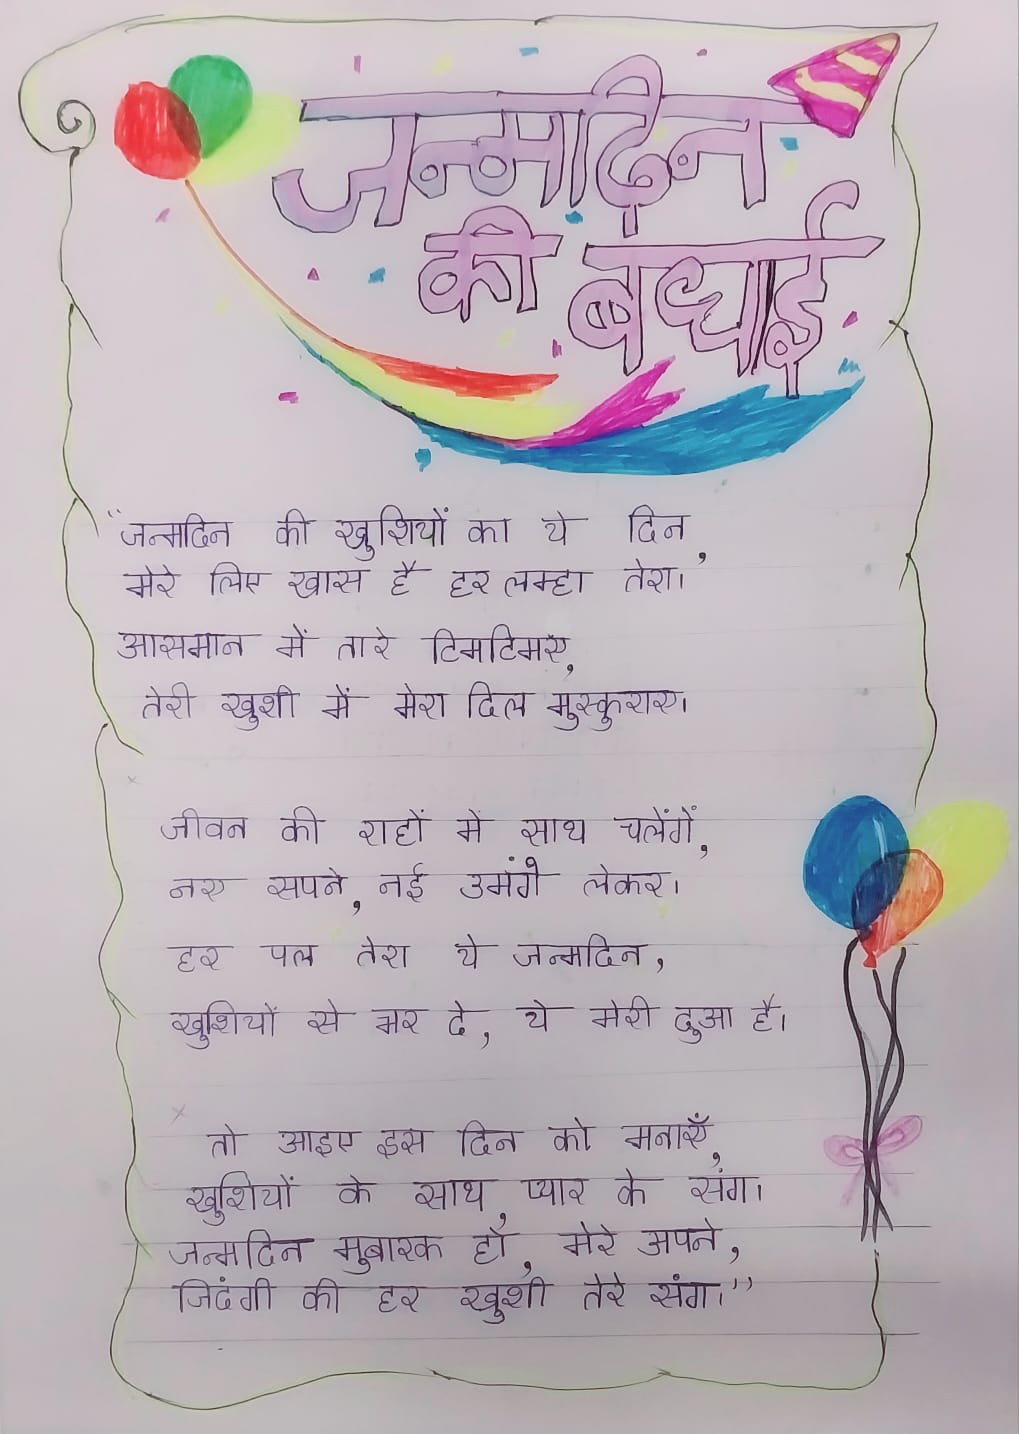 जन्मदिन
की बधाई
“जन्मदिन की खुशियों का ये दिन,
मेरे लिए खास है हर लम्हा तेरा।
आसमान में तारे टिमटिमाए,
तेरी खुशी में मेरा दिल मुस्कुराए।
जीवन की राहों में साथ चलेंगें,
नए सपने, नई उमंगे लेकर।
हर पल तेरा ये जन्मदिन,
खुशियों से भर दे, ये मेरी दुआ है।
तो आइए इस दिन को मनाएँ,
खुशियों के साथ, प्यार के संग।
जन्मदिन मुबारक हो, मेरे अपने,
जिदंगी की हर खुशी तेरे संग।”